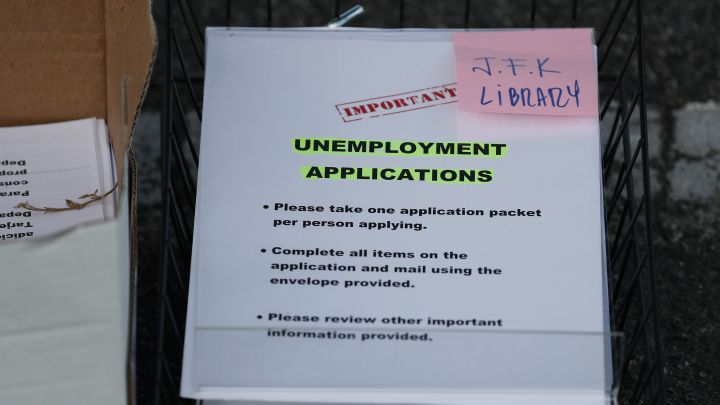 J.F.K
LIBRARY
IMPORTANT
UNEMPLOYMENT
APPLICATIONS
• Please take one application packet
per person applying.
• Complete all items on the
application and mail using the
envelope provided.
• Please review other important
information provided.
adicio
Tarje
Depa
Para
cons
prop
Depa